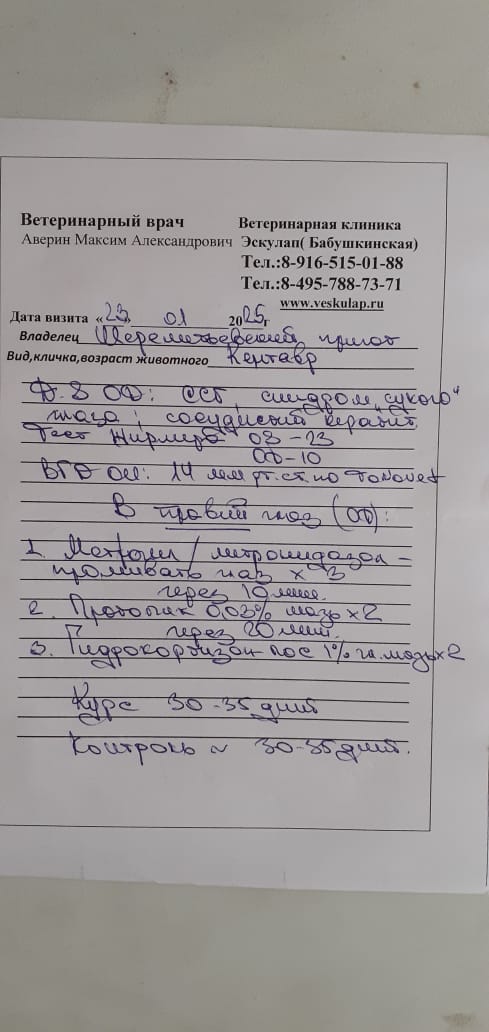 Ветеринарный врач
Ветеринарная клиника
Аверин Максим Александрович
Эскулап( Бабушкинская)
Тел.:8-916-515-01-88
Тел.:8-495-788-73-71
www.veskulap.ru
Дата визита «23» 01 2025г
Владелец Шереметьевский приют
Вид,кличка,возраст животного Кентавр
D.S OD: ССГ, синдром „сухого“
глаза; сосудистый кератит.
Тест Ширмера OS-23
OD-10
ВГД OU: 14 мм рт.ст. по Tonovet
В правый глаз (OD):
1. / метронидазол -
промывать глаз х 3
через 10 мин.
2. Протопик 0,03% мазь х2
через 20 мин.
3. Гидрокортизон пос 1% гл. мазь х2
Курс 30-35 дней
Контроль ~ 30-35 дней.